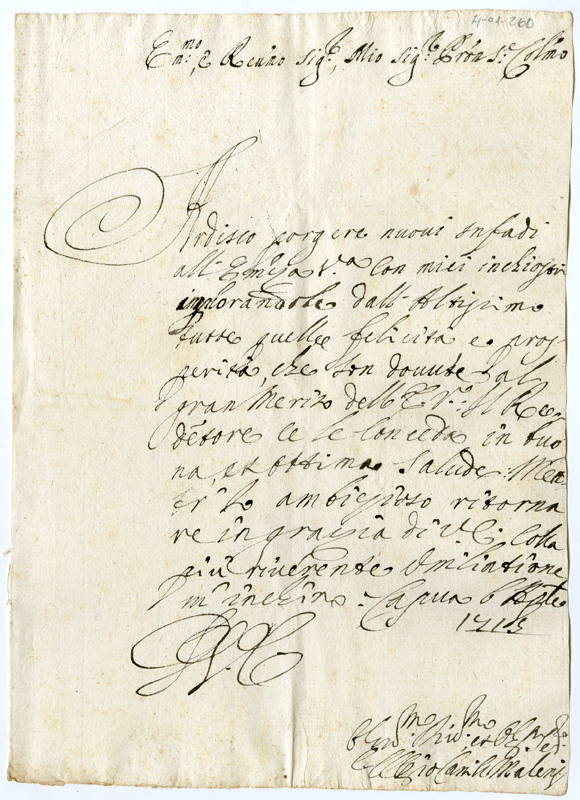 4-01-260
Em:mo, e Reuño Sig:r, Mio Sig:r Pròn S:e Colmo
Ardisco porgere nuoui infadi
all'Em̃za V.a con miei inchiostri
implorandole dall'Altissimo
tutte quelle felicità e pros-
perità, che son douute al
gran Merito dell'E. V.: Il Re
dētore ce le Conceda in buo
na, et ottima salude: Men-
tr'Io ambizioso ritorna
re in grazia di V. E. Colla
più riuerente Vmiliatione
m'inchino. Capua 6 Aple
1713
D. V. E.